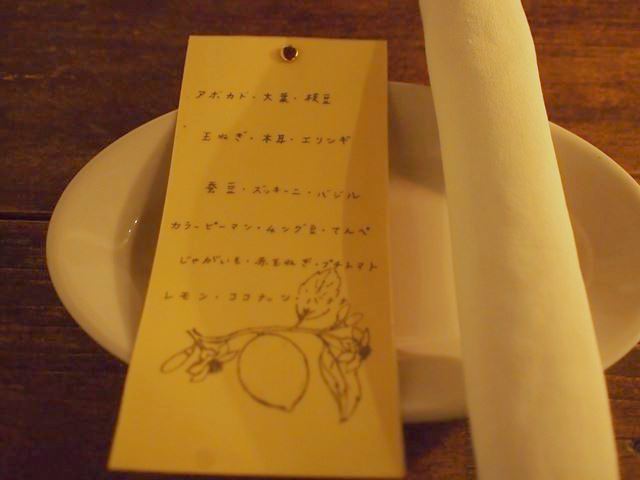 アボカド・大葉・枝豆
玉ねぎ・木耳・エリンギ
蚕豆・ズッキーニ・バジル
カラーピーマン・ムング豆・てんぺ
じゃがいも・赤玉ねぎ・プチトマト
レモン・ココナッツ・バナナ